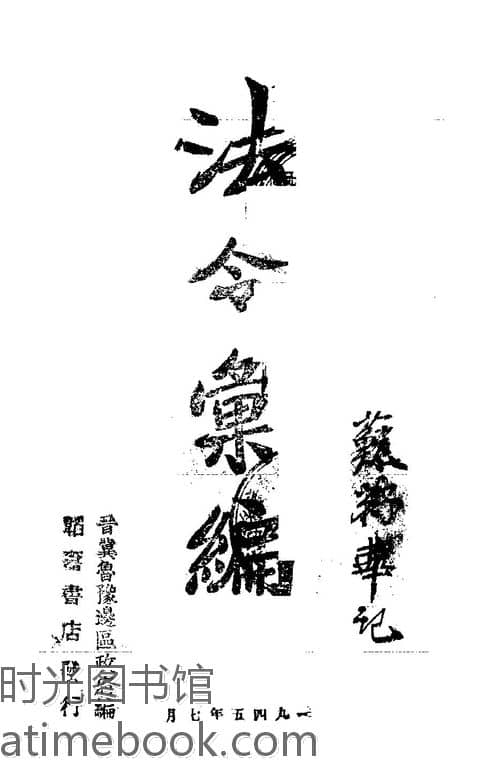 法令彙編
蘇 華记
晉冀魯豫邊區政府編
韜奮書店發行
一九四五年七月
时光图书馆
atimebook.com